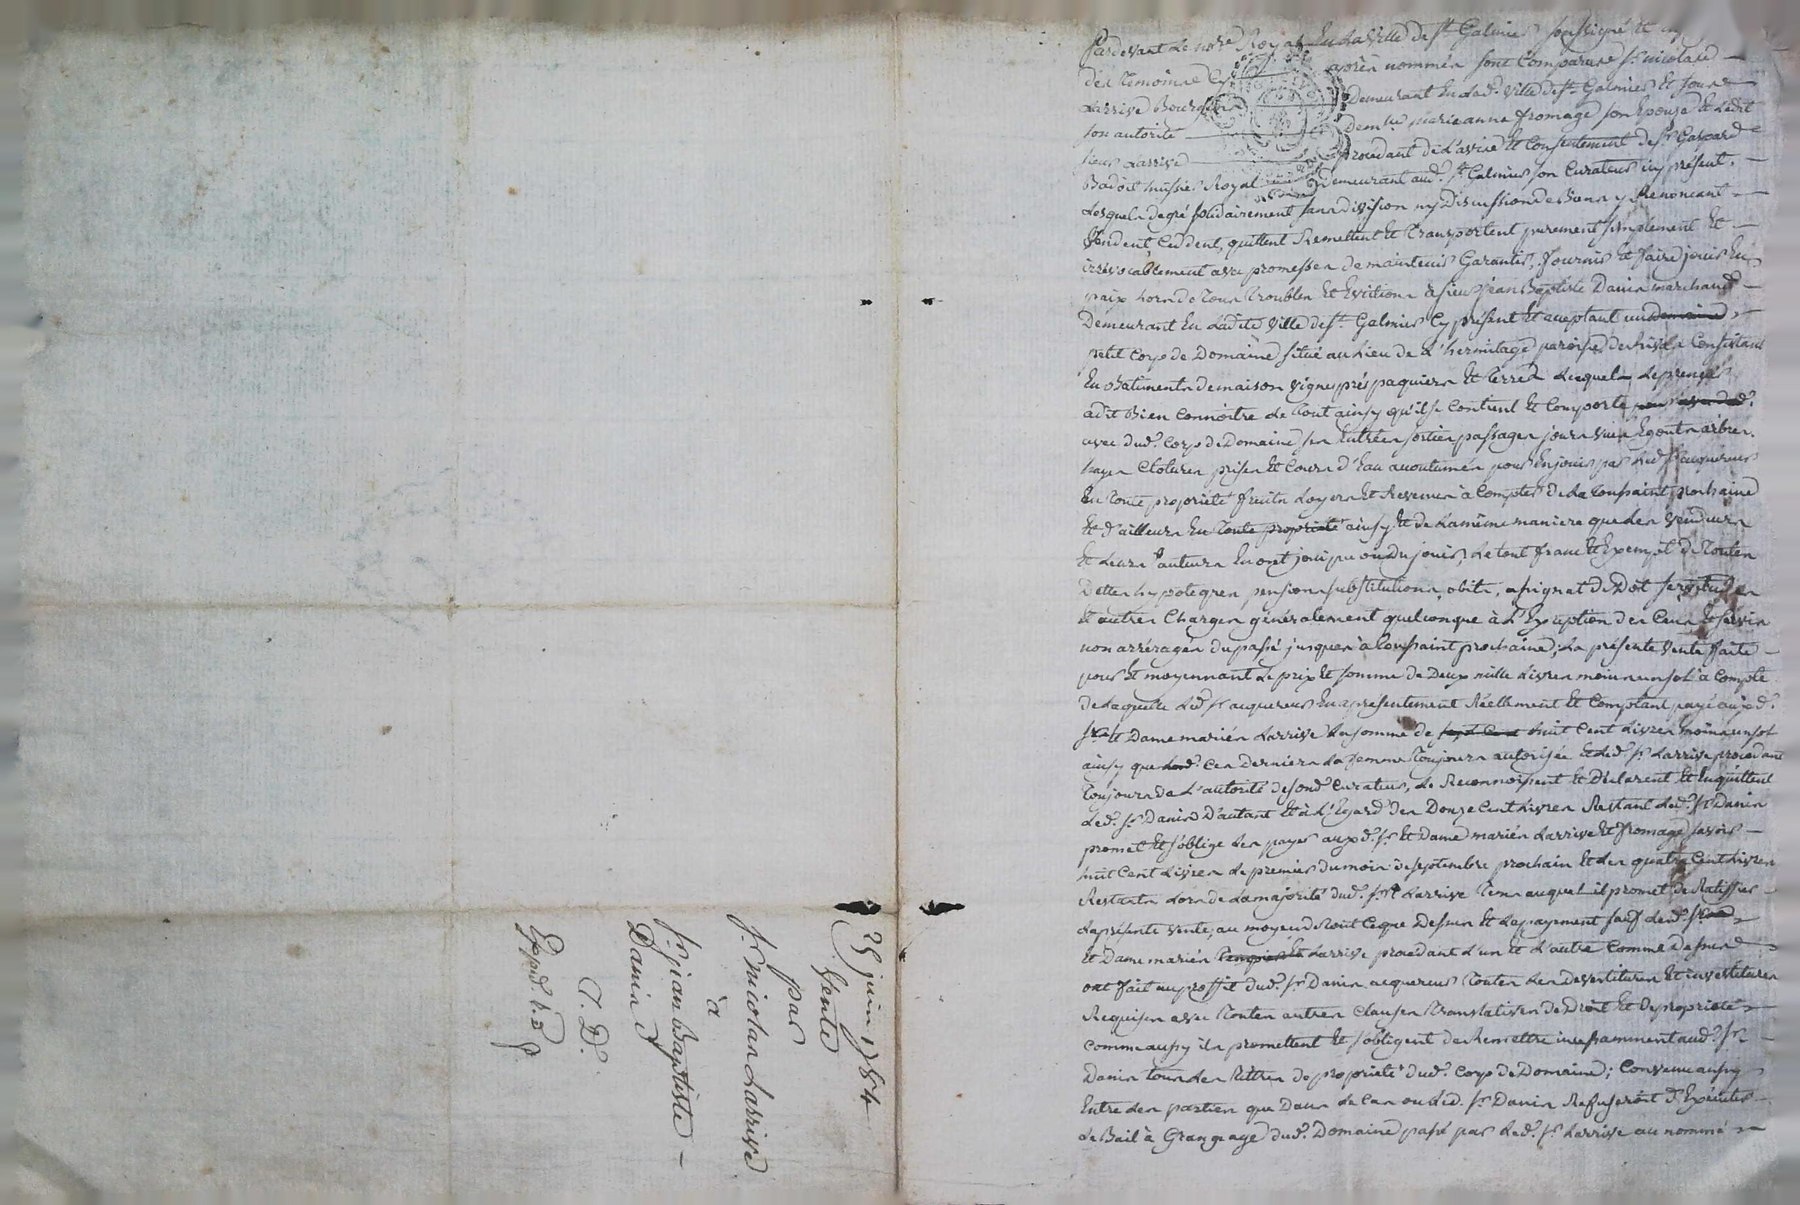 25 juin 1784
Vente
par
Sr. nicolas Larrive
à
Sr. jean Baptiste
Danin
T. D.
Expd. h.d
Pardevant Le notre Royal En La Ville de St. Galmier soussigné et
des Temoins cy aprés nommés sont Comparus Sr. nicolas
Larrive Bourgeois Demeurant En Lad. Ville de St. Galmier Et sous
son autorité Demlle. marianne fromage son Epouse Et Ledit
sieur Larrive procédant de L'avis Et Consentement de Sr. Gaspard
Badoil huissier Royal Demeurant aud. St. Galmier son Curateur icy présent.
Lesquels de gré solidairement sans division ny Discussion de Biens y Renoncant
Vendent Cedent, quittent Remettent Et Transportent purement simplement Et
irrévocablement avec promesses de maintenir Garantir, fournir Et faire jouir En
paix hors de Tous Troubles Et Evictions à sieur jean Baptiste Danin marchand
Demeurant En Ladite Ville de St. Galmier Cy présent Et aceptant un domaine
petit Corp de Domaine situé au Lieu de L'hermitage paroisse de Consistant
En Batiments de maison vigne prés paquiers Et Terres Lequel Le preneur
a dit Bien Connoitre Le Tout ainsy qu'il se Contient Et Comporte
avec dud. Corp de Domaine ses Entrées sorties passages jours vües Egouts arbres
hayes Clotures prises Et Cours d'Eau acoutumés pour En jouir par Led. Sr. acquereur
En Toute proprieté fruits Loyers Et Revenus à Compter de La Toussaint prochaine
Et d'ailleurs En Toute proprieté ainsy Et de La même maniere que Les Vendeurs
Et Leurs auteurs En ont joui pu ou Du jouir, Le tout franc Et Exempt de Toutes
Dettes hypoteques pensions substitutions, obits, assignat de Dot servitudes
Et autres Charges généralement quelconque à L'Exception des Cens Et servis
non arréragés du passé jusques à Toussaint prochaine; La présente Vente faite
pour Et moyennant Le prix Et somme de Deux mille Livres moins un sol à Compte
de Laquelle Led. Sr. acquereur En a présentement Réellement Et Comptant payé auxd.
Sr. Et Dame mariés Larrive La somme de sept Cent huit Cent Livres moins un sol
ainsy que Lesd. Ces Derniers La femme Toujours autorisée Et Led. Sr. Larrive procedant
Toujours de L'autorité de sond. Curateur, Le Reconnoissent Et Déclarent Et En quittent
Led. Sr. Danin D'autant Et à L'Egard des Douze Cent Livres Restant Led. Sr. Danin
promet Et s'oblige Les payer auxd. Sr. Et Dame mariés Larrive Et fromage savoir
huit Cent Livres Le premier du mois de septembre prochain Et Les quatre Cent Livres
Restants Lors de La majorité dud. Sr. Larrive Tems auquel il promet de Ratiffier
La présente vente, au moyen de Tout Ce que Dessus Et Le payement fait Lesd. Sr.
Et Dame mariés Larrive procedant L'un Et L'autre Comme dessus
ont fait au proffit dud. Sr. Danin acquereur Toutes Les Devestitures Et investitures
Requises avec Toutes autres Clauses Translatives de Droit Et de proprieté
Comme aussy ils promettent Et s'obligent de Remettre incessamment aud. Sr.
Danin tous Les Tittres de proprieté dud. Corp de Domaine; Convenu aussy
Entre Les parties que Dans Le Cas ou Led. Sr. Danin Refuseroit d'Exécuter
Le Bail à Grangeage dud. Domaine passé par Led. Sr. Larrive au nommé